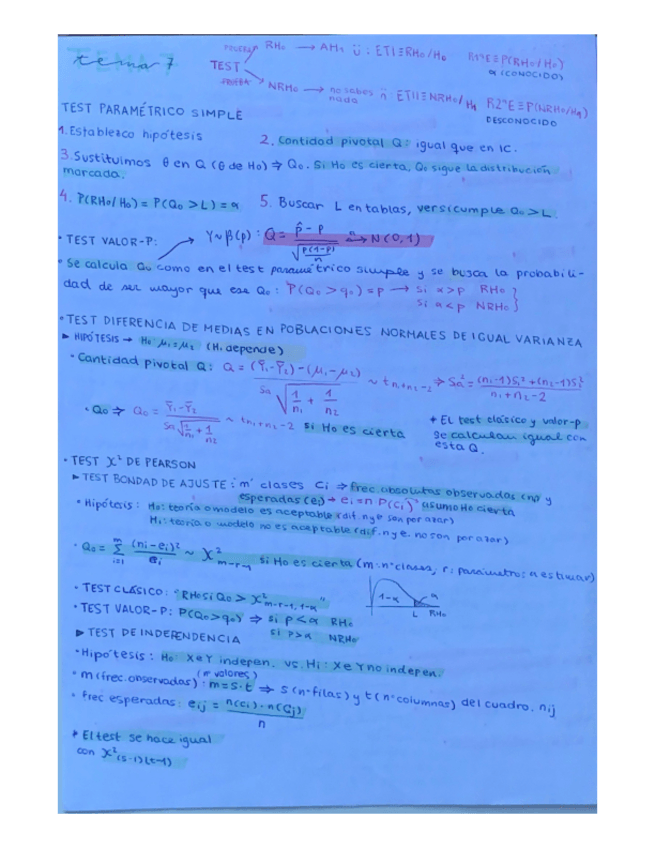 tema 7
TEST
PRUEBA RHo → AH1 ü : ETI≡RHo/Ho R1ºE≡P(RHo/Ho)
α (CONOCIDO)
PRUEBA NRHo → no sabes nada ETII≡NRHo/H1 R2ºE≡P(NRHo/H1)
DESCONOCIDO
TEST PARAMÉTRICO SIMPLE
1. Establezco hipótesis 2. Cantidad pivotal Q: igual que en IC.
3. Sustituimos θ en Q (θ de Ho) ⇒ Qo. Si Ho es cierta, Qo sigue la distribución
marcada.
4. P(RHo/Ho) = P(Qo > L) = α 5. Buscar L en tablas, ver si cumple Qo > L.
• TEST VALOR-P: Y~β(p) : Q = (p̂ - p) / √(p(1-p)/n) → N(0,1)
• Se calcula Qo como en el test paramétrico simple y se busca la probabili-
dad de ser mayor que ese Qo: P(Qo > qo) = p → si α>p RHo
si α<p NRHo
• TEST DIFERENCIA DE MEDIAS EN POBLACIONES NORMALES DE IGUAL VARIANZA
► HIPÓTESIS → Ho μ1=μ2 (H1 depende)
• Cantidad pivotal Q: Q = ((Ȳ1-Ȳ2)-(μ1-μ2)) / (Sa √(1/n1 + 1/n2)) ~ t n1+n2-2 ⇒ Sa² = ((n1-1)S1²+(n2-1)S2²) / (n1+n2-2)
• Qo ⇒ Qo = (Ȳ1-Ȳ2) / (Sa √(1/n1 + 1/n2)) ~ t n1+n2-2 si Ho es cierta
* El test clásico y valor-p
se calculan igual con
esta Q.
• TEST X² DE PEARSON
► TEST BONDAD DE AJUSTE: m clases Ci ⇒ frec. absolutas observadas (ni) y
esperadas (ei) → ei = n P(Ci) asumo Ho cierta
• Hipótesis: Ho: teoría o modelo es aceptable (dif. n y e son por azar)
H1: teoría o modelo no es aceptable (dif. n y e no son por azar)
• Qo = Σ(i=1, m) (ni-ei)²/ei ~ X² m-r-1 si Ho es cierta (m: nº clases, r: parámetros a estimar)
• TEST CLÁSICO: "RHo si Qo > X² m-r-1, 1-α"
1-α α
L RHo
• TEST VALOR-P: P(Qo>qo) ⇒ si p<α RHo
si p>α NRHo
► TEST DE INDEPENDENCIA
• Hipótesis: Ho: X e Y indepen. vs. H1: X e Y no indepen.
(nº valores)
• m (frec. observadas): m=s·t ⇒ s (nº filas) y t (nº columnas) del cuadro. nij
• frec esperadas: eij = n(ci)·n(cj) / n
* El test se hace igual
con X² (s-1)(t-1)